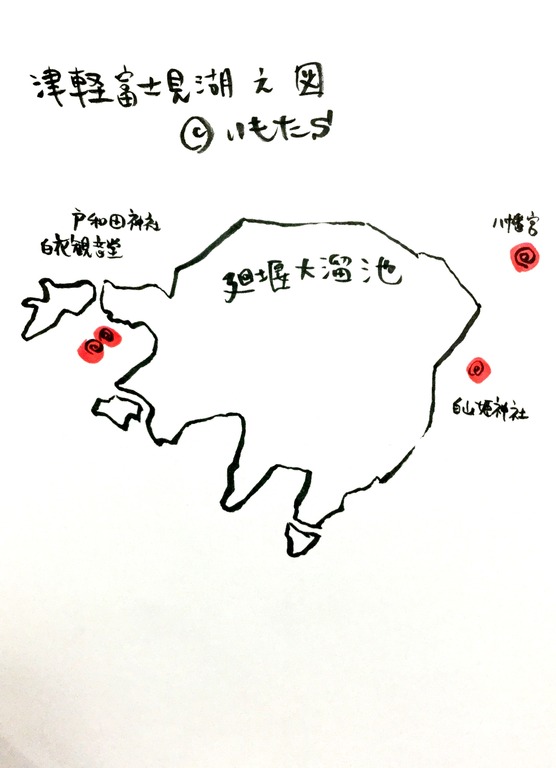 津軽富士見湖之図
©いもたS
戸和田神社
白衣観音堂
八幡宮
廻堰大溜池
白山姫神社